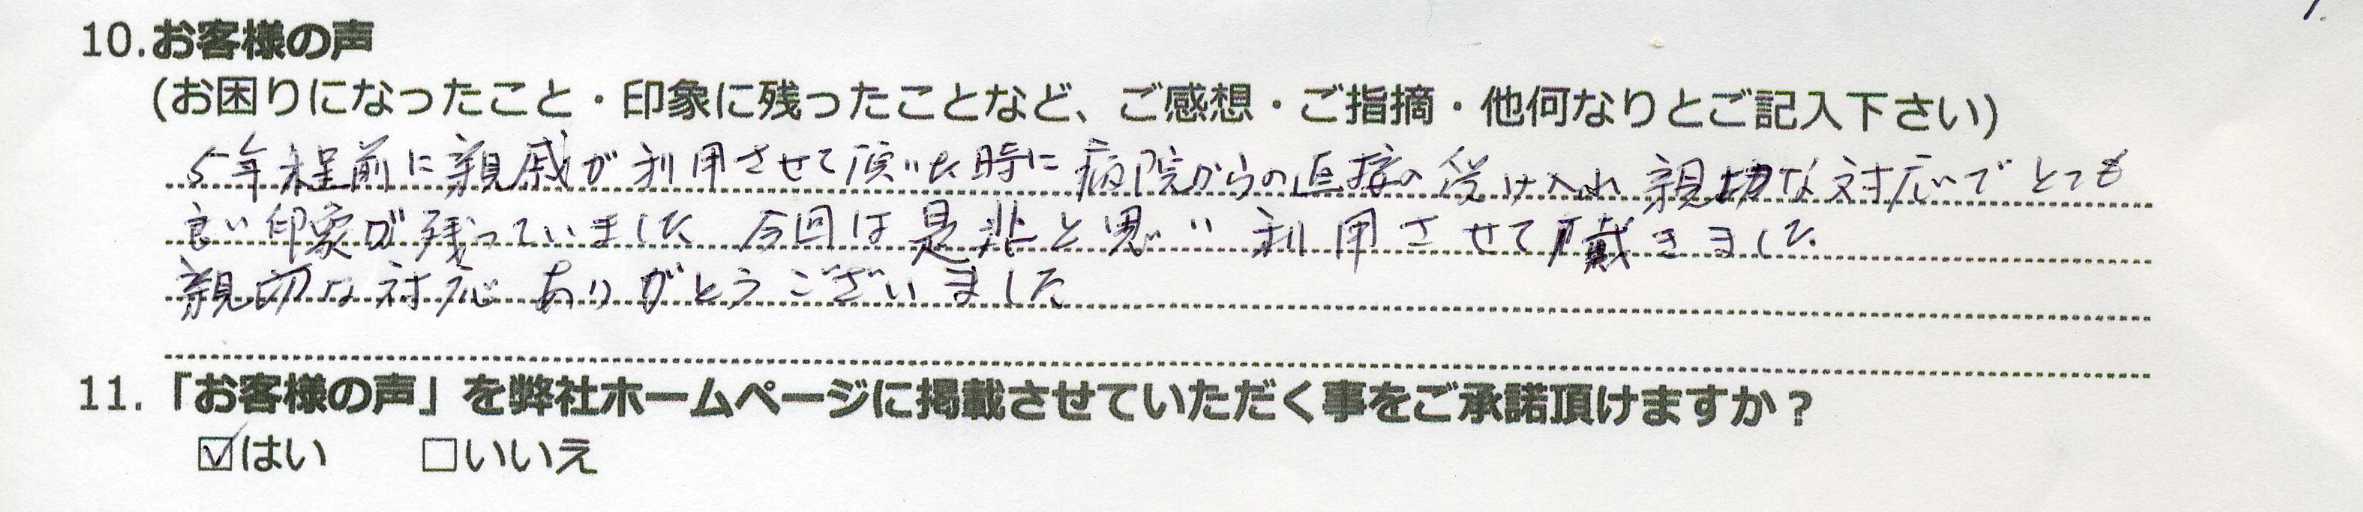 10.お客様の声
(お困りになったこと・印象に残ったことなど、ご感想・ご指摘・他何なりとご記入下さい)
5年程前に親戚が利用させて頂いた時に病院からの直接の受け入れ親切な対応でとても
良い印象が残っていました 今回は是非と思い利用させて戴きました
親切な対応ありがとうございました
11.「お客様の声」を弊社ホームページに掲載させていただく事をご承諾頂けますか？
☑はい □いいえ